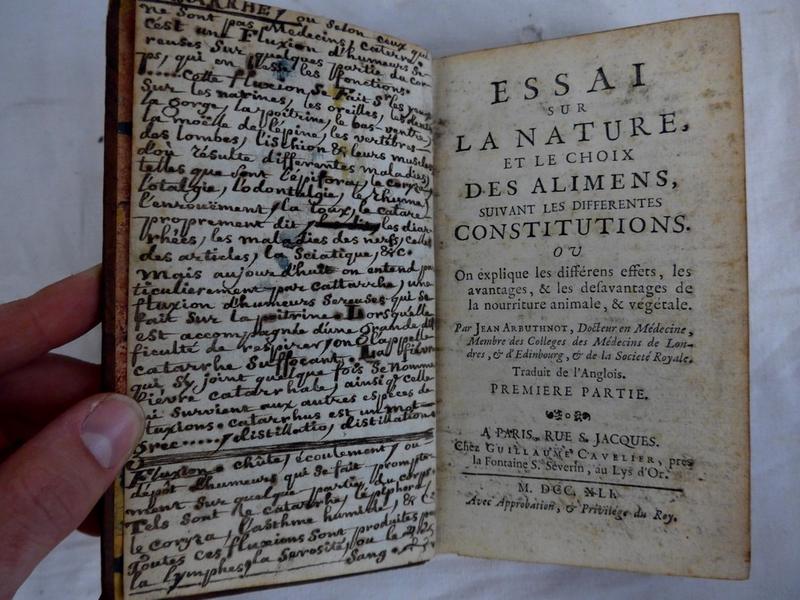 CATARRHE, ou selon ceux qui
ne sont pas Medecins, Caterre.
C'est un Fluxion d'humeurs Se-
reuses Sur quelques partie du cor-
ps, qui en blesse les fonctions.
..... Cette fluxion se Fait Sr les yeux
Sur les narines, les oreilles, les dents
la gorge, la poitrine, le bas-ventre,
la moële de l'épine, les vertibres
des lombes, l'ischion & leurs muscles
d'où résulte differentes maladies,
telles que sont l'épifora, le coryza
l'otalgie, l'odontalgie, le rhume,
l'enrouëment, la toux, le catarre
proprement dit, les diar-
rhées, les maladies des nerfs, celles
des articles, la Sciatique, &c.
Mais aujourd'huit on entend par
ticulierement par Cattarrhe, une
fluxion d'humeurs Sereuses qui se
fait Sur la poitrine. Lorsqu'elle
est accompagnée d'une grande dif
ficulté de respirer, on l'appelle
catarrhe Suffocant. La fièvre
qui s'y joint quelque fois se nomme
Fièvre catarrhale, ainsi q celle
qui Survient aux autres espèces de
fluxions. Catarrhus est un mot
Grec....., distillatio, distillation
Fluxion. chûte, écoulement, ou
dépôt d'humeurs qui se fait prompte-
ment Sur quelque partie du corps.
Tels Sont le catarrhe, l'épiphora,
le coryza, l'asthme humide, & c
Toutes ces fluxions Sont produites par
la lymphe, la Serosité, ou le
Sang.
ESSAI
SUR
LA NATURE,
ET LE CHOIX
DES ALIMENS,
SUIVANT LES DIFFERENTES
CONSTITUTIONS.
OU
On éxplique les différens effets, les
avantages, & les desavantages de
la nourriture animale, & végétale.
Par JEAN ARBUTHNOT, Docteur en Médecine,
Membre des Colleges des Médecins de Lon-
dres, & d'Edinbourg, & de la Societé Royale.
Traduit de l'Anglois.
PREMIERE PARTIE.
A PARIS, RUE S. JACQUES.
Chez GUILLAUME CAVELIER, près
la Fontaine S. Séverin, au Lys d'Or.
M. DCC. XLI.
Avec Approbation, & Privilége du Roy.